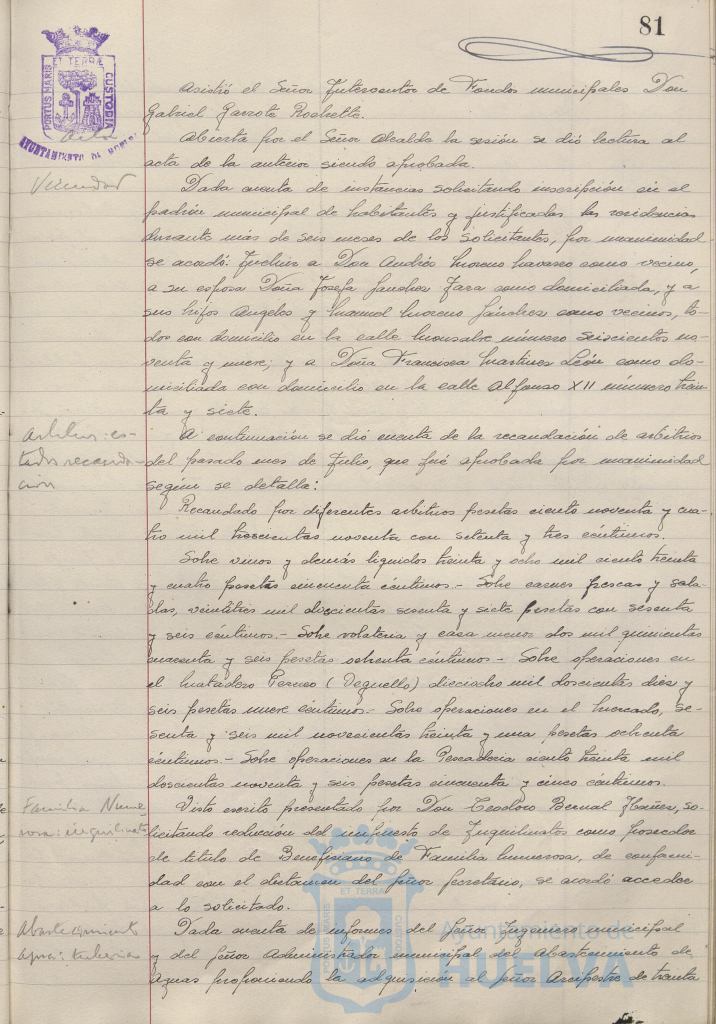 81
PORTUS MARIS
ET TERRÆ
CUSTODIA
AYUNTAMIENTO DE HUELVA
Acta
Asistió el Señor Interventor de Fondos municipales Don
Gabriel Garrote Rochette.
Abierta por el Señor Alcalde la sesión se dió lectura al
acta de la anterior siendo aprobada.
Vecindad
Dada cuenta de instancias solicitando inscripción en el
padrón municipal de habitantes y justificadas las residencias
durante más de seis meses de los solicitantes, por unanimidad
se acordó: Incluir a Don Andrés Moreno como vecino,
a su esposa Doña Josefa Sánchez Jara como domiciliada, y a
sus hijos Angeles y Manuel Moreno Sánchez como vecinos, to-
dos con domicilio en la calle número seiscientos no-
venta y nueve; y a Doña Francisca Martínez León como do-
miciliada con domicilio en la calle Alfonso XII número trein-
ta y siete.
Arbitrios: es-
tados recauda-
ción
A continuación se dió cuenta de la recaudación de arbitrios
del pasado mes de Julio, que fué aprobada por unanimidad
según se detalla:
Recaudado por diferentes arbitrios pesetas ciento noventa y cua-
tro mil trescientas noventa con setenta y tres céntimos.
Sobre vinos y demás liquidos treinta y ocho mil ciento treinta
y cuatro pesetas cincuenta céntimos.- Sobre carnes frescas y sala-
das, veintitres mil doscientas sesenta y siete pesetas con sesenta
y seis céntimos.- Sobre volateria y caza menor dos mil quinientas
cuarenta y seis pesetas ochenta céntimos.- Sobre operaciones en
el Matadero Porcuo (Deguello) dieciocho mil doscientas diez y
seis pesetas nueve céntimos.- Sobre operaciones en el Mercado, se-
senta y seis mil novecientas treinta y una pesetas ochenta
céntimos.- Sobre operaciones en la Pescaderia ciento treinta mil
doscientas noventa y seis pesetas cincuenta y cinco céntimos.
Familia Nume-
rosa: inquilinato
Visto escrito presentado por Don Teodoro Bernal Ibañez, so-
licitando reducción del impuesto de Inquilinatos como poseedor
de titulo de Beneficiario de Familia Numerosa, de conformi-
dad con el dictamen del Señor Secretario, se acordó acceder
a lo solicitado.
Abastecimiento
agua: tuberia
Dada cuenta de informes del Señor Ingeniero municipal
y del Señor Administrador municipal del Abastecimiento de
Aguas proponiendo la adquisición al Señor Arcipreste de treinta
PORTUS MARIS
ET TERRA
CUSTODIA
Ayuntamiento de
HUELVA